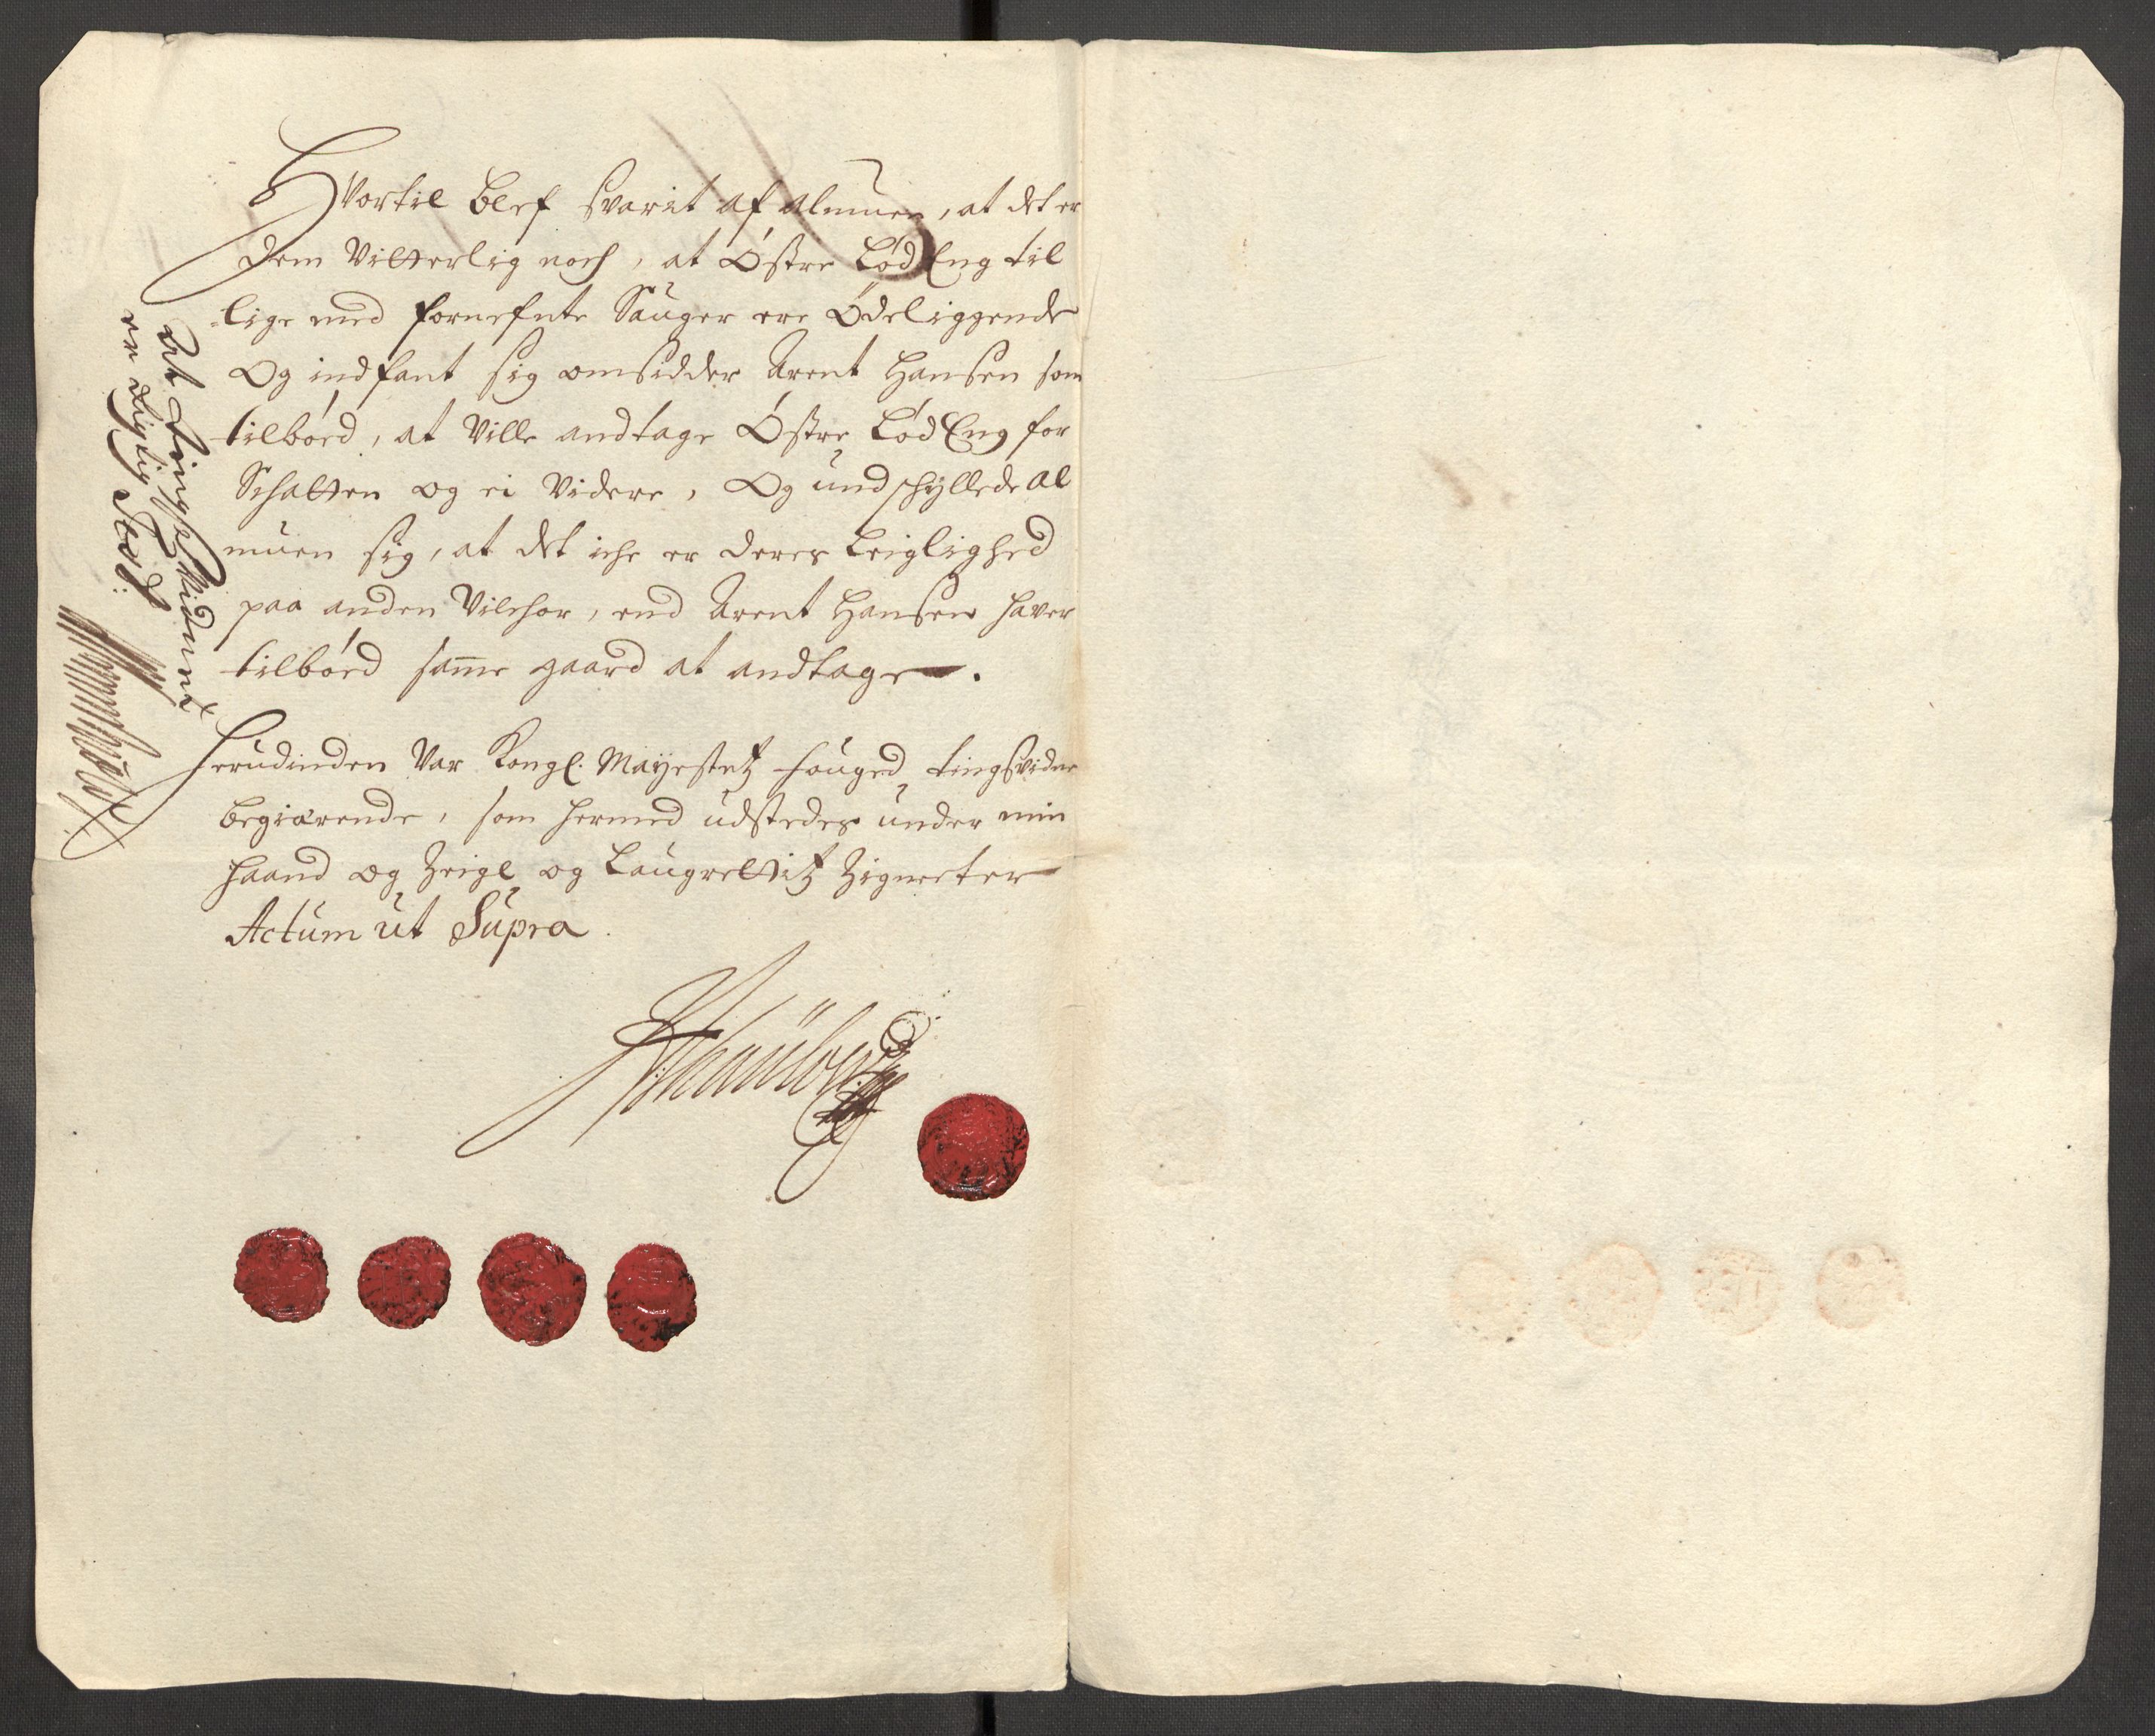 Hvortil blef svarit af almuen, at det er
dem Vitterlig noch, at Østre Lød Eng til
-lige med fornefnte Sauger ere Ødeliggende
Og indfant sig omsidder Arent Hansen som
tilbød, at Ville andtage Østre Lød Eng for
Schatten og ei Videre, Og undschyllede Al
muen sig, at det iche er deres Leiglighed
paa anden Vilchor, end Arent Hansen haver
tilbød same gaard at andtage.
Herudinden Var Kongl. Mayestetz fouged tingsvidne
begiærende, som hermed udstedes under min
haand og Zeigl og Laugrettitz Zigneter
Actum ut Supra.
at Tingsvidnet
er rigtig Test: